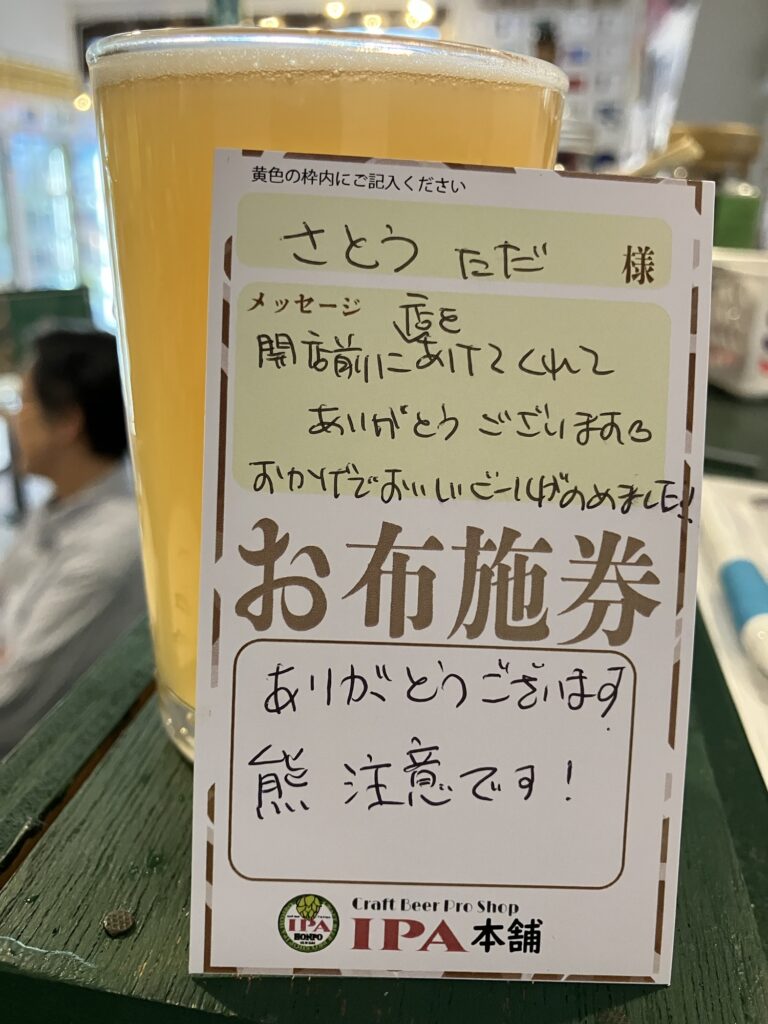 黄色の枠内にご記入ください
さとう ただ 様
メッセージ 店を
開店前にあけてくれて
ありがとうございます
おかげでおいしいビールがのめました!!
お布施券
ありがとうございます
熊 注意です!
Craft Beer Pro Shop
IPA本舗
IPA
HONPO